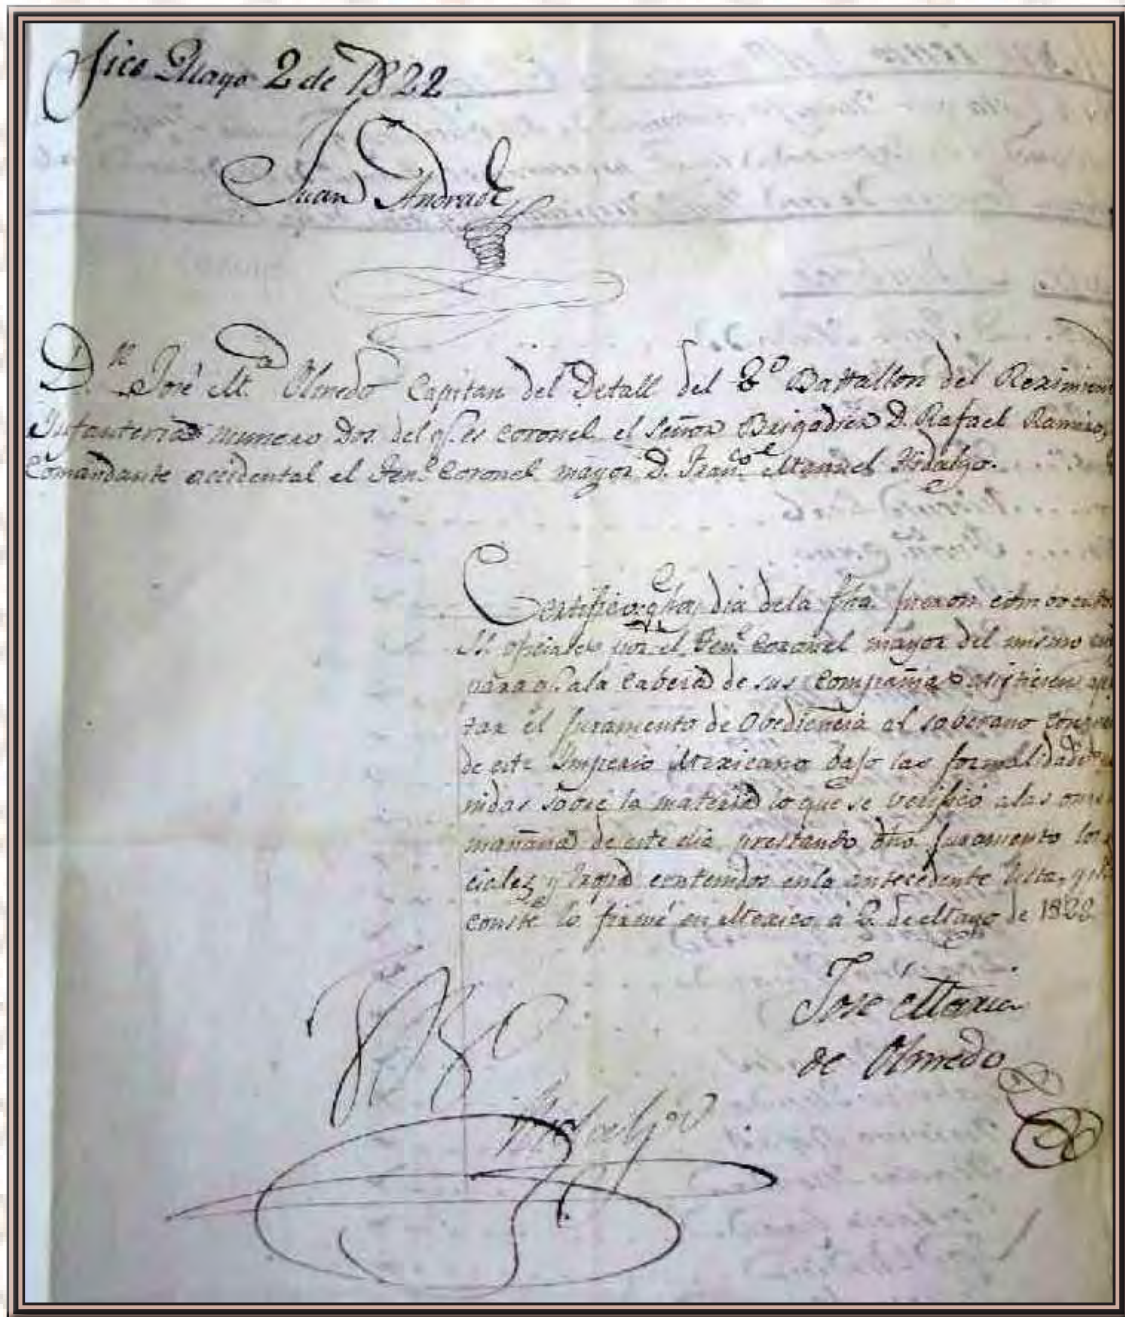 xico Mayo 2 de 1822
Juan Andrade
D.n José M.a Olmedo Capitan del Detall del 2º Battallon del Reximien
Infanteria numero Dos, del q.e es coronel el Señor Brigadier D. Rafael Ramiro,
Comandante accidental el Ten.e Coronel mayor D. Fran.co Manuel Hidalgo.
Certifico q.e hoy dia dela fha. fueron
oficiales por el Ten.e Coronel mayor del mismo
para q.e ala cabeza de sus Compañias asistiesen
tar el juramento de Obediencia al soberano Congre
de este Imperio Mexicano bajo las formalidades
nidas sobre la materia lo que se verificó alas once
mañana de este dia, prestando dho. juramento los
ciales y tropa contenidos enla antecedente lista, y
conste lo firmé en Mexico, á 2 de Mayo de 1822
José Maria
de Olmedo
Hidalgo